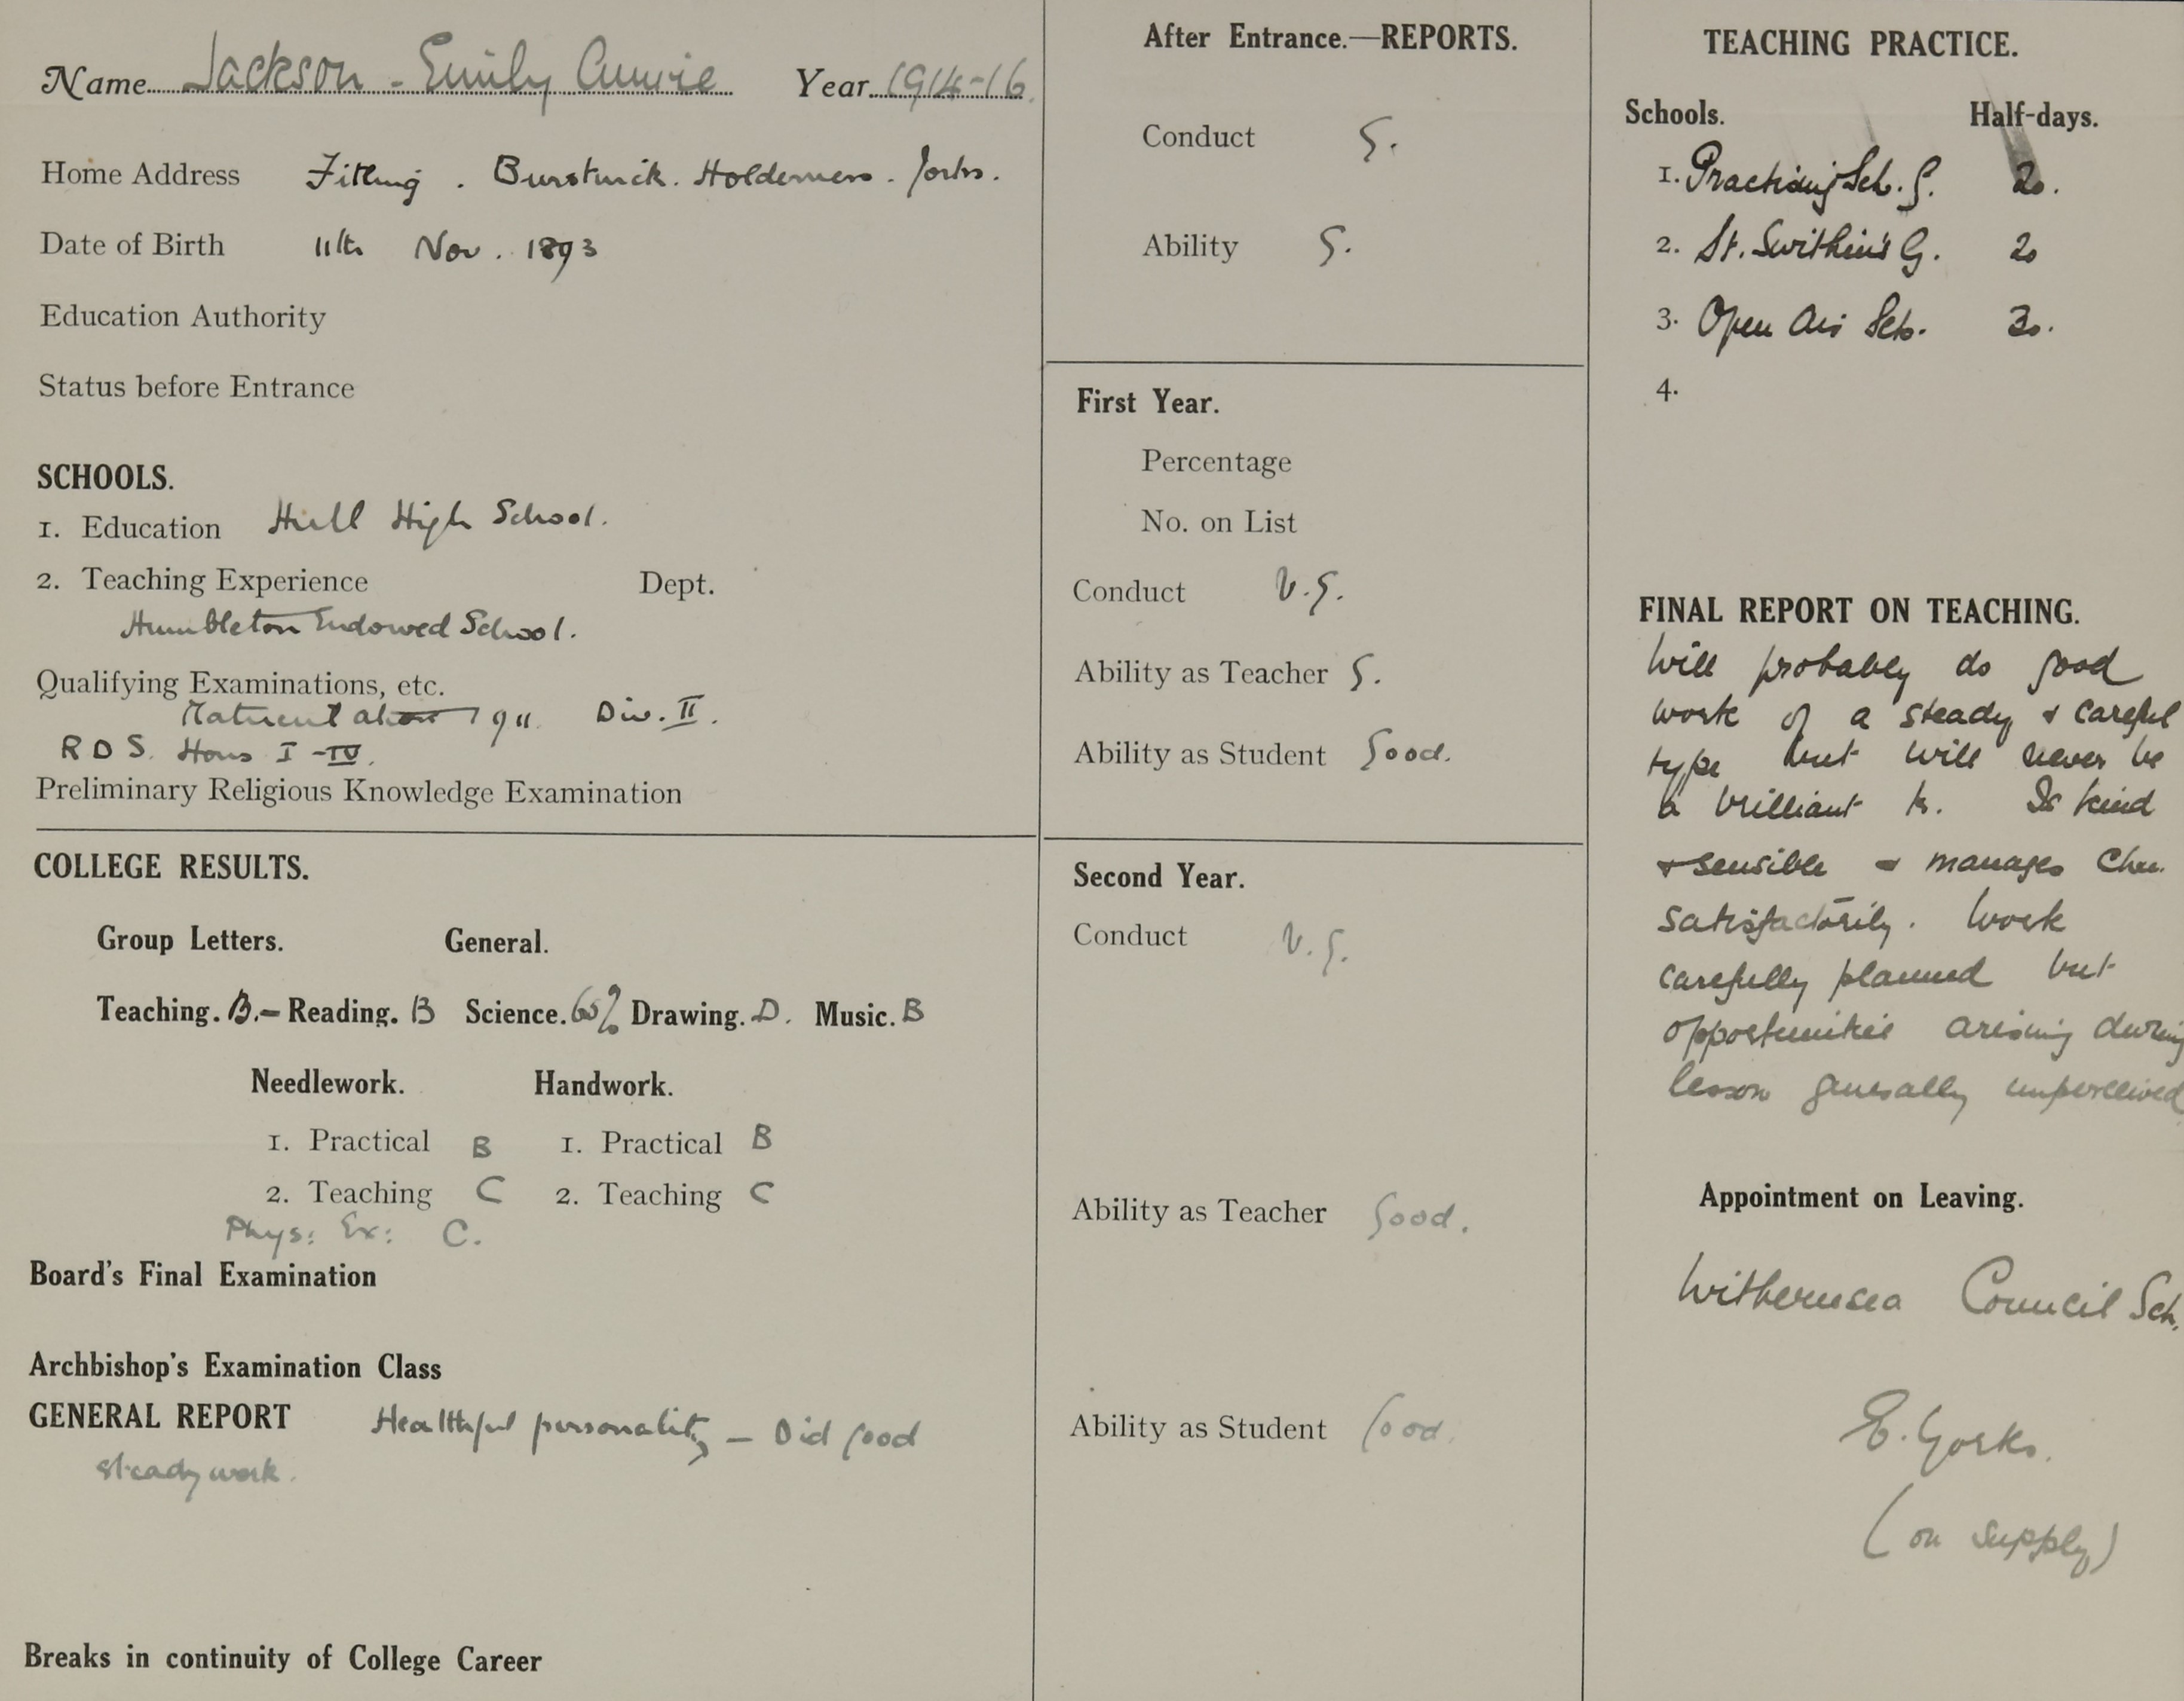 Name Jackson - Emily Annie Year 1914-16.
Home Address Fitling . Burstwick . Holderness . Yorks.
Date of Birth 11th Nov . 1893
Education Authority
Status before Entrance
SCHOOLS.
1. Education Hull High School.
2. Teaching Experience Dept.
Humbleton Endowed School.
Qualifying Examinations, etc.
Matriculation 1911. Div. II.
R D S. Hons I - IV.
Preliminary Religious Knowledge Examination
COLLEGE RESULTS.
Group Letters. General.
Teaching. B.- Reading. B Science. 65% Drawing. D. Music. B
Needlework. Handwork.
1. Practical B 1. Practical B
2. Teaching C 2. Teaching C
Phys: Ex: C.
Board's Final Examination
Archbishop's Examination Class
GENERAL REPORT Healthful personality - Did good
steady work.
Breaks in continuity of College Career
After Entrance.—REPORTS.
Conduct G.
Ability G.
First Year.
Percentage
No. on List
Conduct V.G.
Ability as Teacher G.
Ability as Student Good.
Second Year.
Conduct V.G.
Ability as Teacher Good.
Ability as Student Good.
TEACHING PRACTICE.
Schools. Half-days.
1. Practising Sch. G. 20.
2. St. Swithin's G. 20
3. Open Air Sch. 30.
4.
FINAL REPORT ON TEACHING.
Will probably do good
work of a steady & careful
type but will never be
a brilliant tr. Is kind
& sensible & manages Chn.
satisfactorily. Work
carefully planned but
opportunities arising during
lesson generally unperceived
Appointment on Leaving.
Withernsea Council Sch.
E. Yorks.
(on supply)